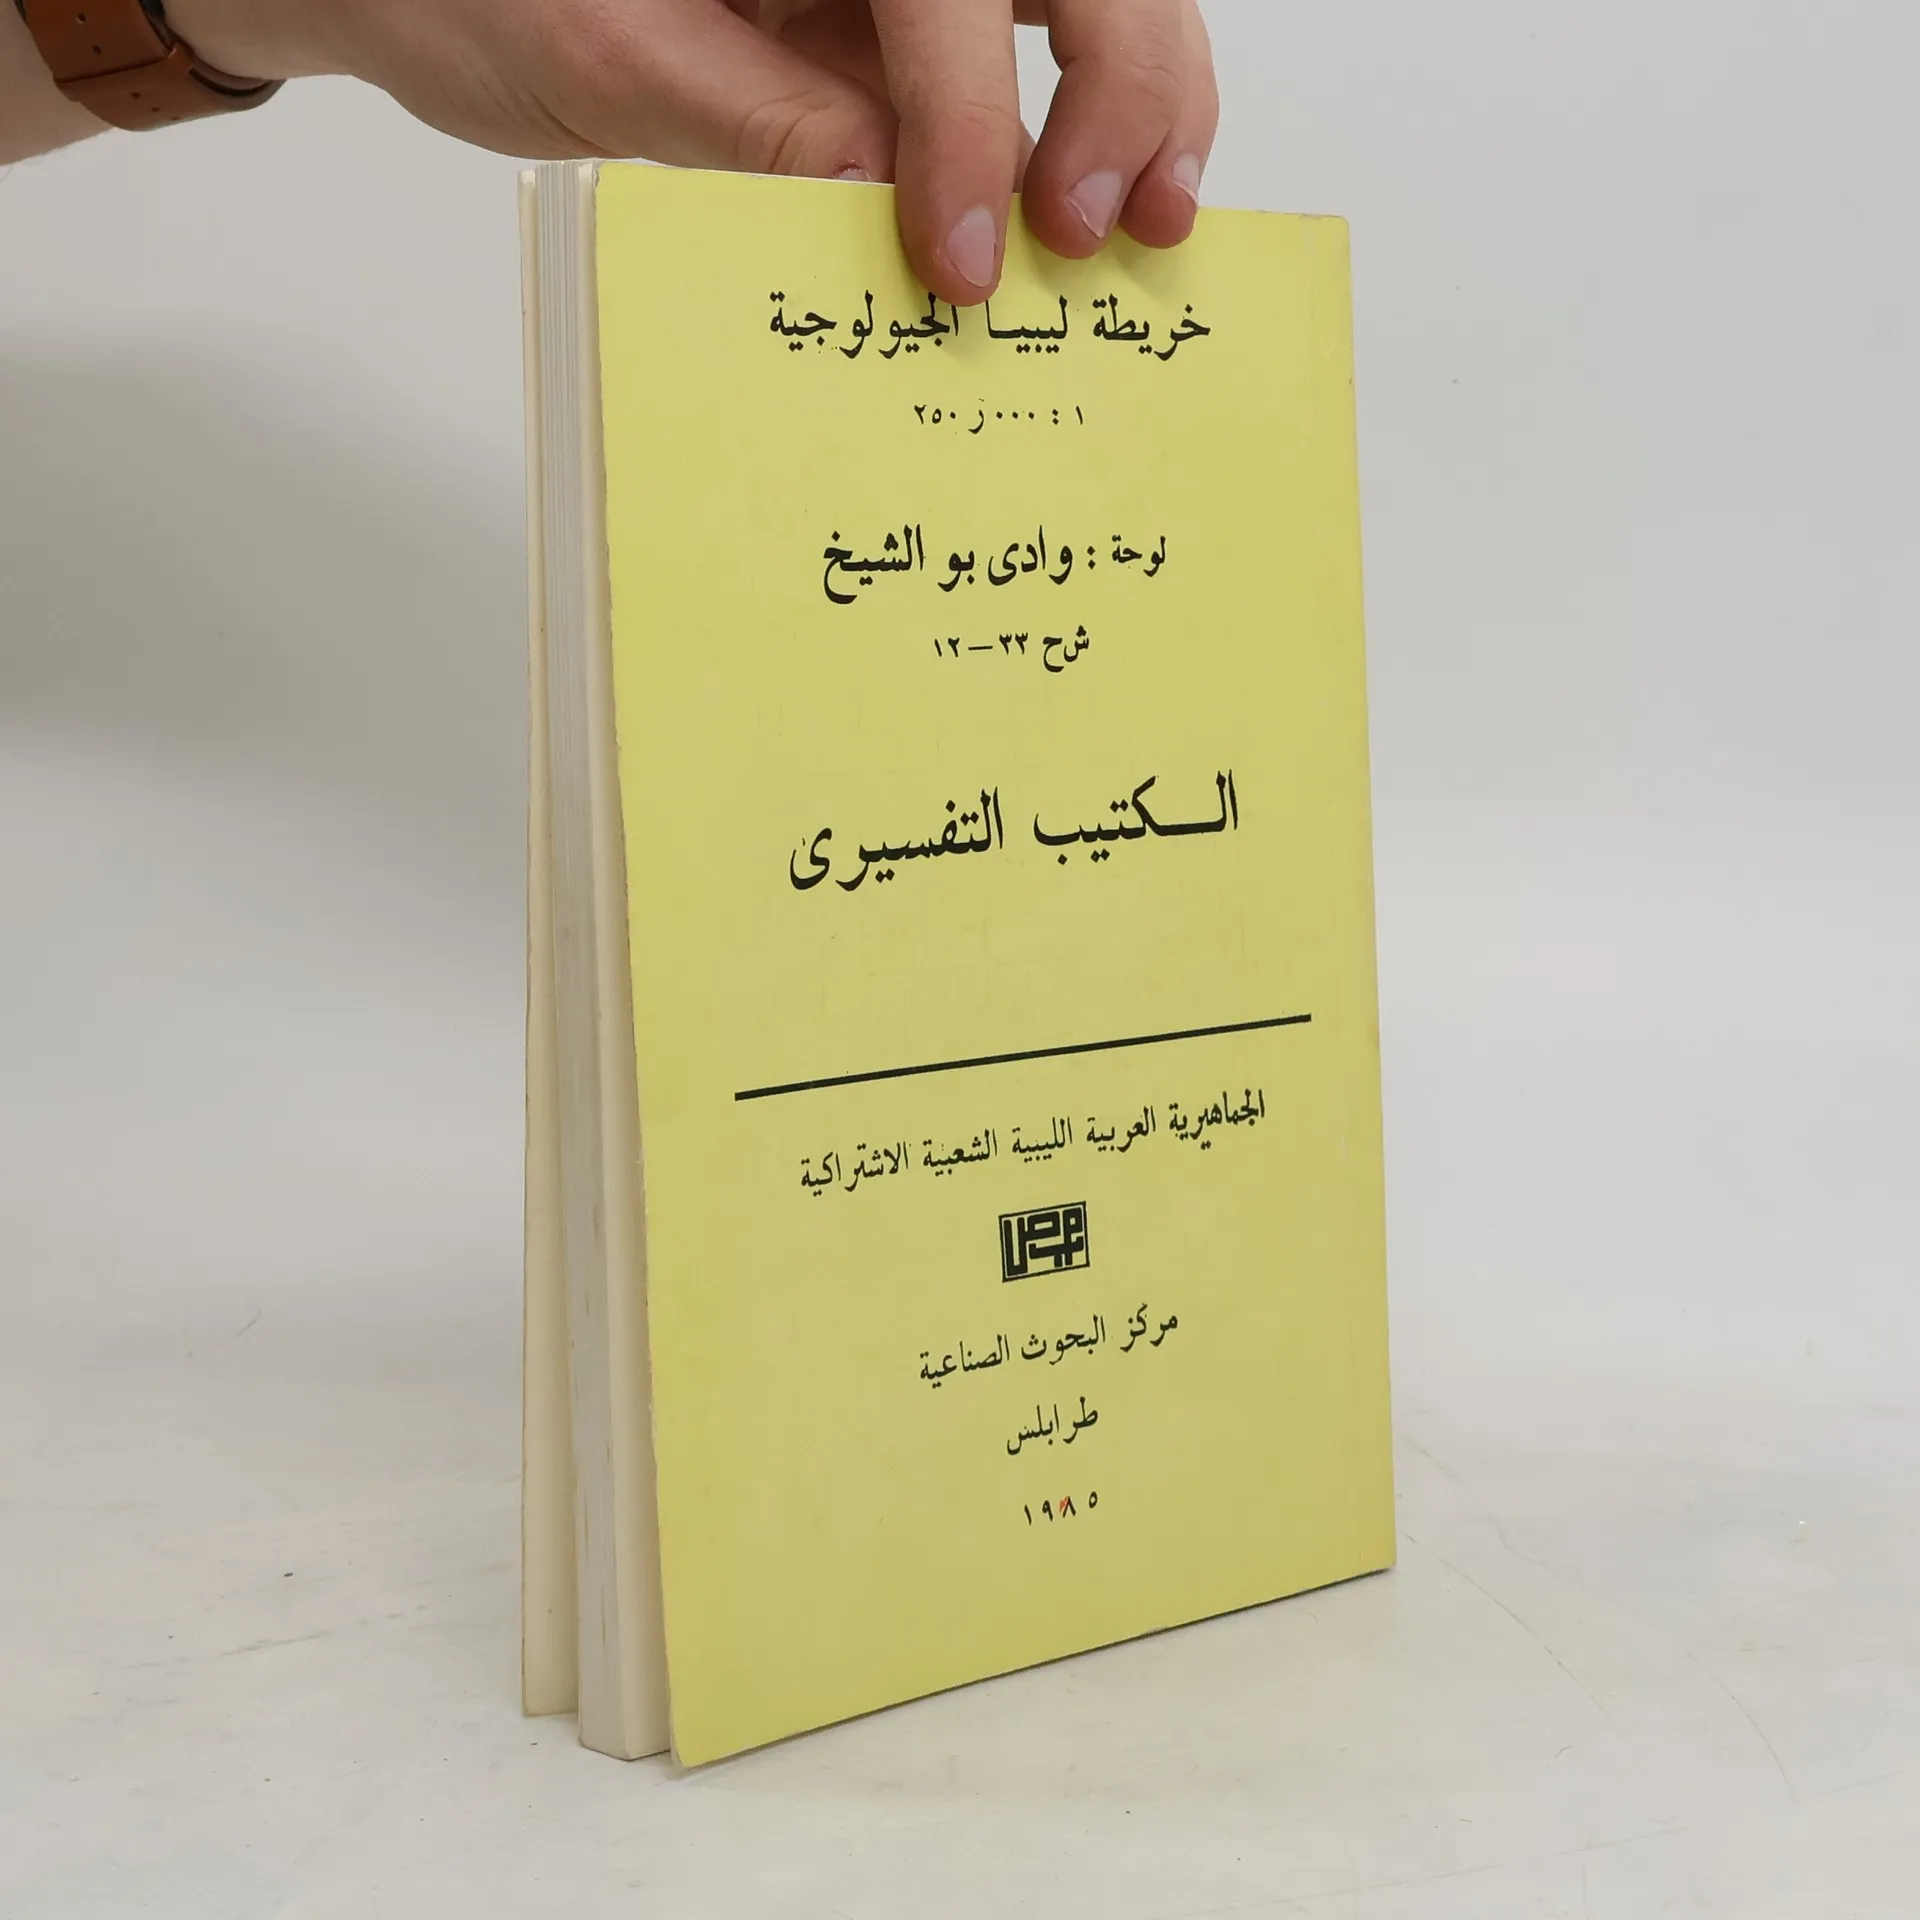 خريطة ليبيا الجيولوجية
١ : ٠٠٠ر٢٥٠
لوحة : وادى بو الشيخ
ش ح ٣٣ — ١٢
الكتيب التفسيرى
الجماهيرية العربية الليبية الشعبية الاشتراكية
مركز البحوث الصناعية
طرابلس
١٩٨٥